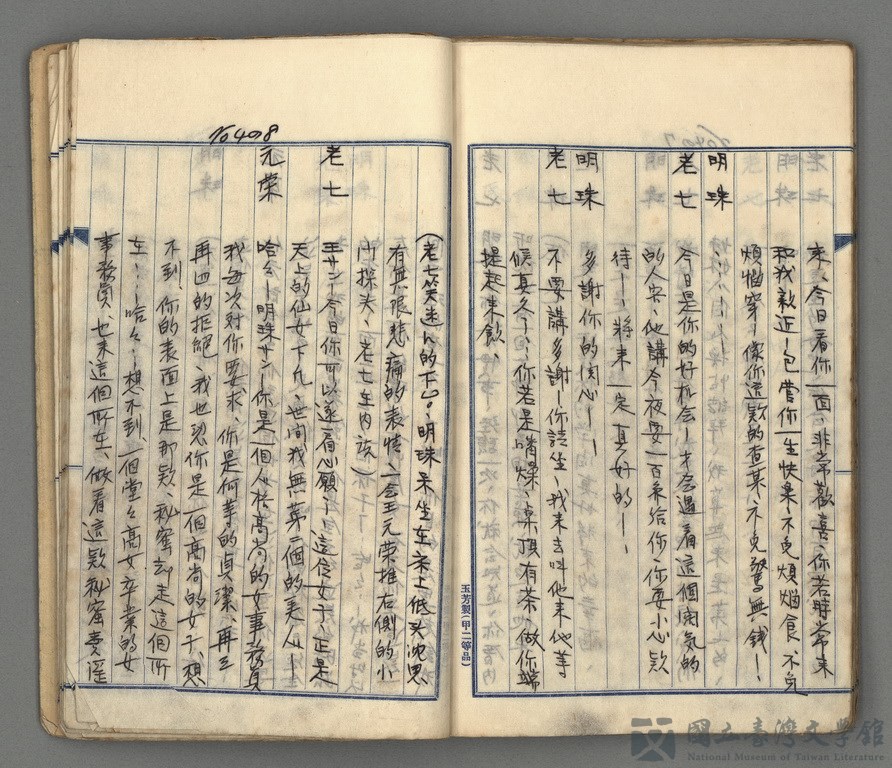 來、今日看你一面、非常歡喜、你若時常來
和我親近、包當你一生快樂、不免煩惱食、不免
煩惱穿、像你這款的查某、不免驚無錢、
明珠
老七 今日是你的好机会、才会遇着這個闊気的
的人客、他講今夜要一百条給你、你要小心欵
待、將来一定真好的、
明珠 多謝你的関心、
老七 不要講多謝、你請坐、我来去叫他来、他等
候真久了、你若是嘴燥、桌頂有茶、做你端
提起来飲、
玉芳製(甲二等品)
No 408
(老七笑迷々的下台。明珠呆坐在床上低头沈思
有無限悲痛的表情、一会王元荣推右側的小
门探头、老七在内說)
老七 王サン、今日你可以遂着心願、這位女子正是
天上的仙女下凡、世间我無第二個的美人、
元荣 哈々、明珠サン、你是一個人格高尚的女事務員
我每次対你要求、你是何等的貞潔、再三
再四的拒絕、我也認你是一個高尚的女子、想
不到、你的表面上是那欵、秘密却走這個所
在、哈々、想不到、一個堂々高女卒業的女
事務員、也来這個所在、做着這欵秘密賣淫
國立臺灣文學館
National Museum of Taiwan Literature